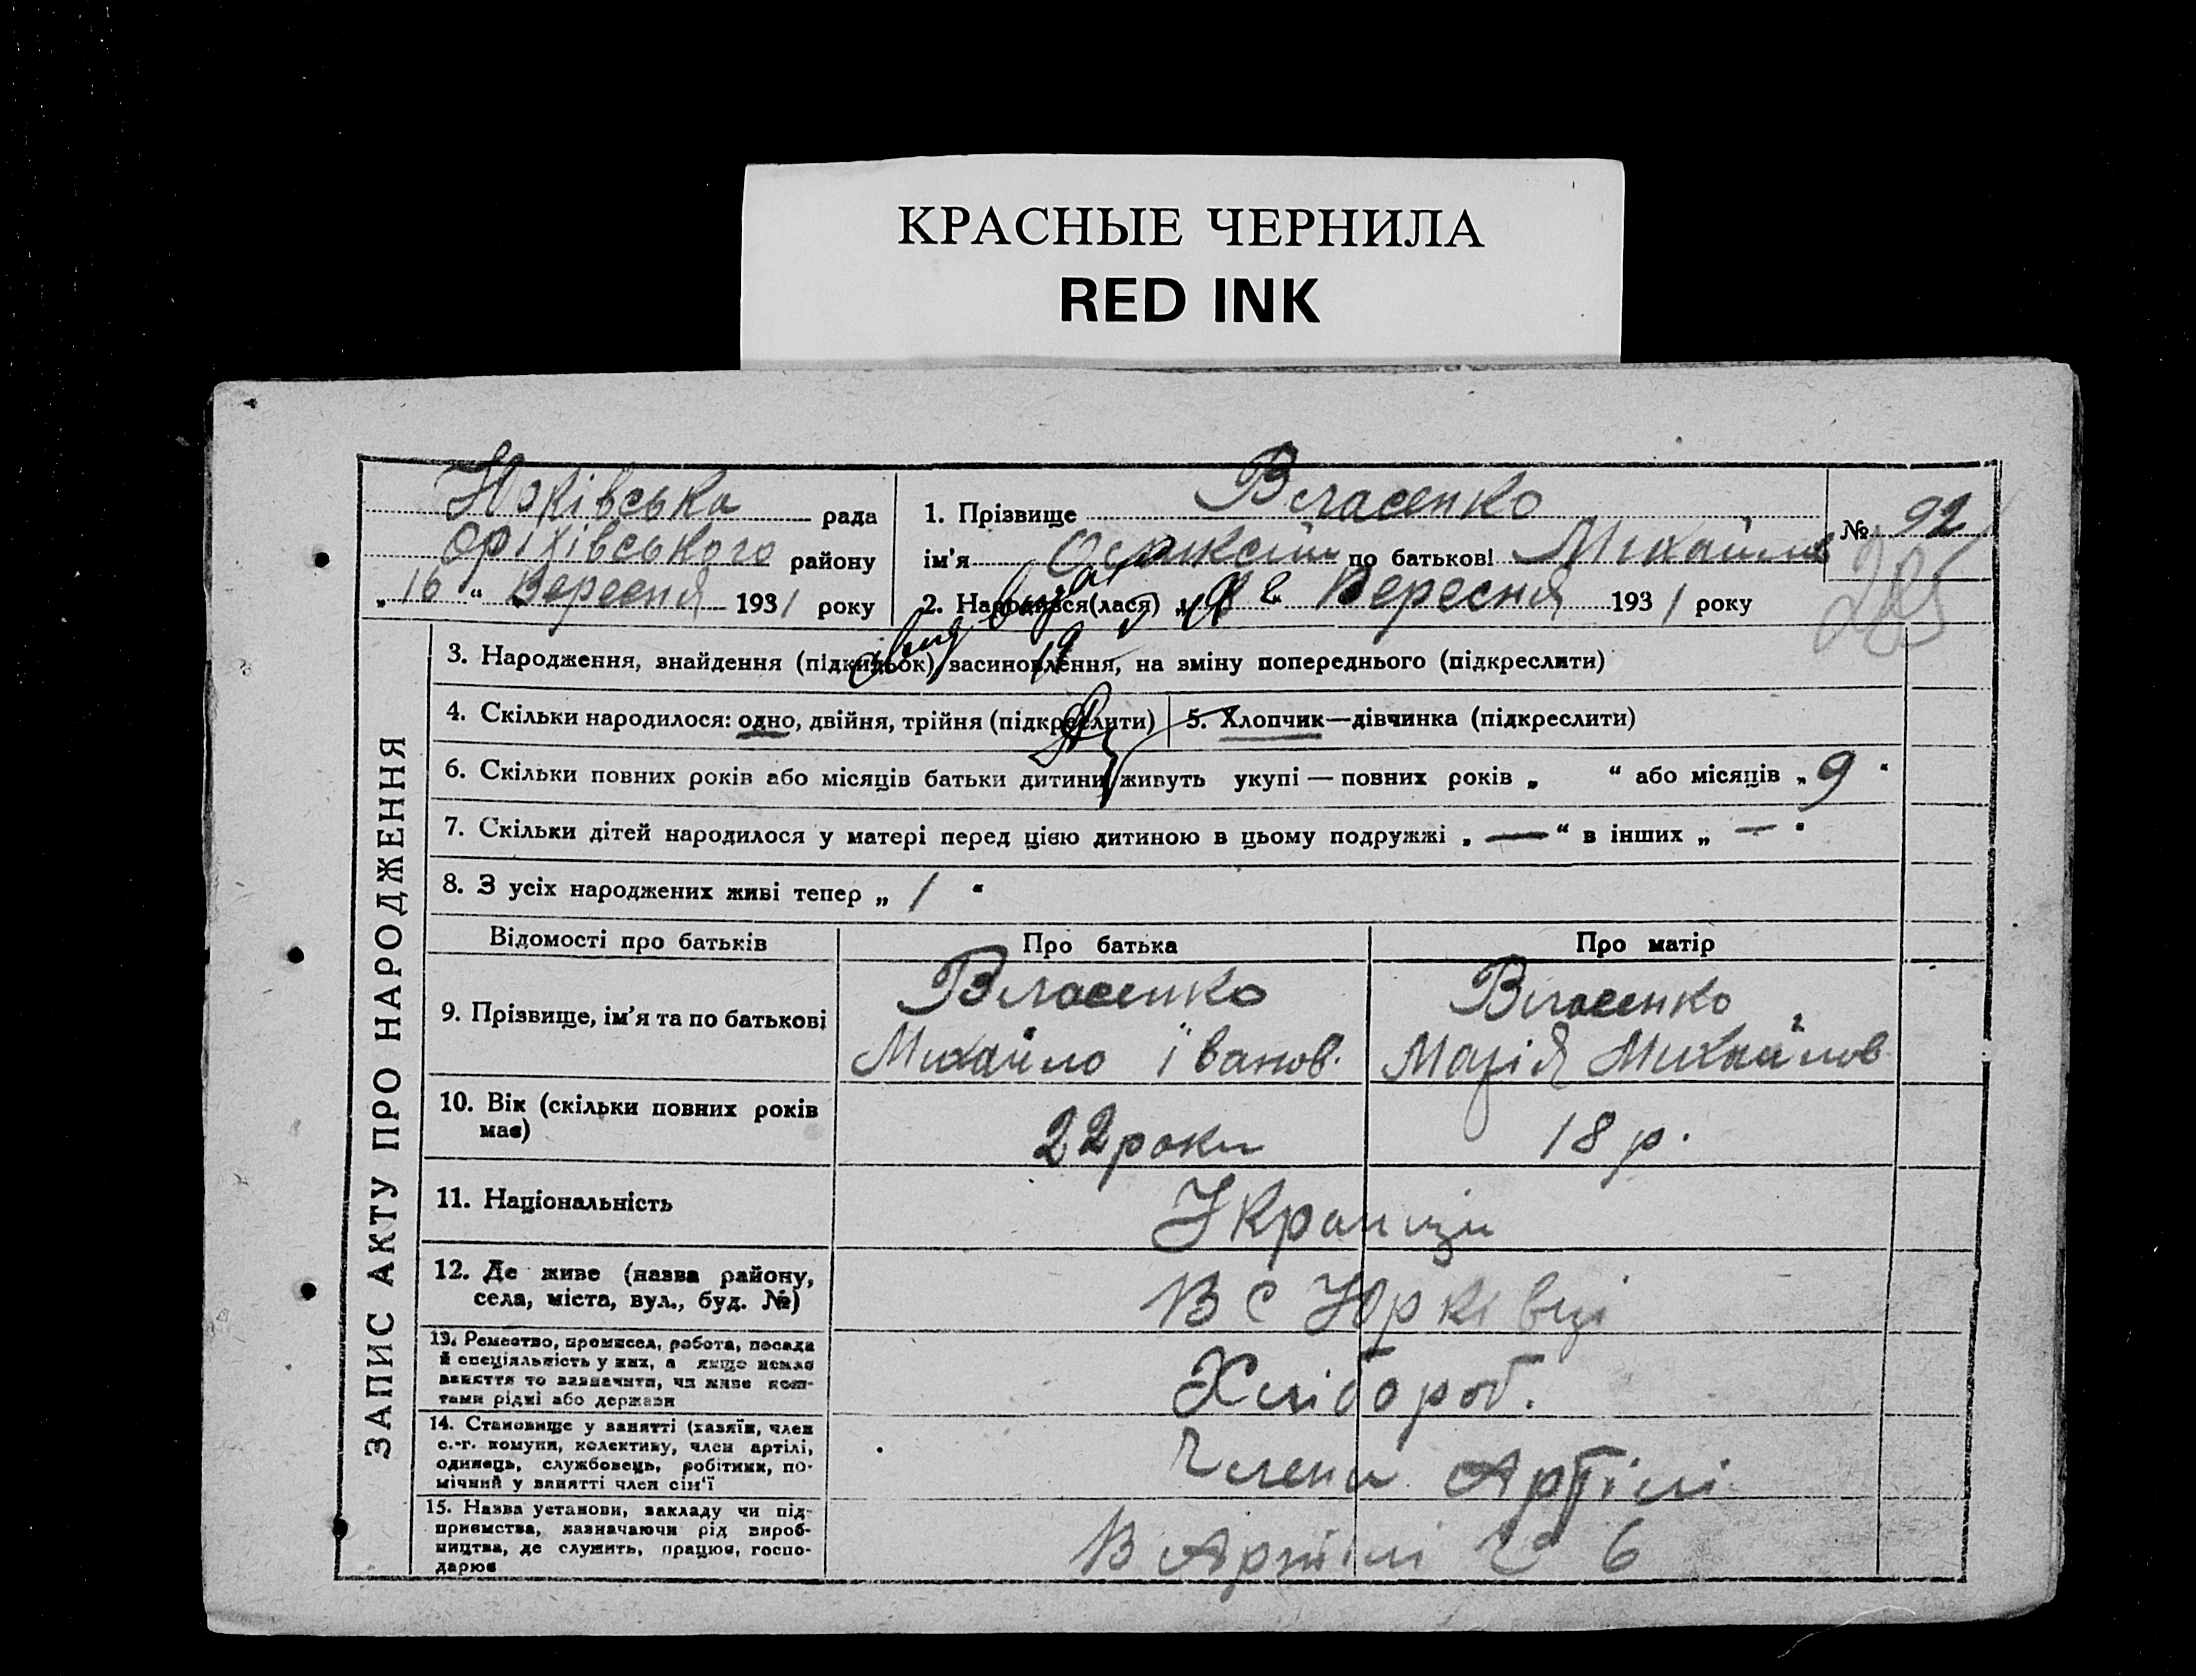 КРАСНЫЕ ЧЕРНИЛА
RED INK
Юрківська рада
Оріхівського району
„16“ Вересня 1931 року
1. Прізвище Власенко
№ 92
ім'я по батькові Михайлов
285
2. Народився(лася) „ 2 “ Вересня 1931 року
3. Народження, знайдення (підкидьок), васиновлення, на вміну попереднього (підкреслити)
4. Скільки народилося: одно, двійня, трійня (підкреслити)
5. Хлопчик—дівчинка (підкреслити)
6. Скільки повних років або місяців батьки дитини живуть укупі — повних років „ “ або місяців „9“
7. Скільки дітей народилося у матері перед цією дитиною в цьому подружжі „—“ в інших „—“
8. З усіх народжених живі тепер „1“
ЗАПИС АКТУ ПРО НАРОДЖЕННЯ
Відомості про батьків
Про батька
Про матір
9. Прізвище, ім'я та по батькові
Власенко
Михайло Іванов.
Власенко
Марія Михайлов
10. Вік (скільки повних років
має)
22 роки
18 р.
11. Національність
Українци
12. Де живе (назва району,
села, міста, вул., буд. №)
В с Юрківці
13. Ремество, промисел, робота, посада
й спеціяльність у них, а якщо немає
ваняття то вазначити, чи живе кош-
тами рідні або держави
Хлібороб.
14. Становище у ванятті (хавяїн, член
с.-г. комуни, колективу, член артілі,
одинець, службовець, робітник, по-
мічний у ванятті член сім'ї
Члени Артілі
15. Назва установи, вакладу чи під-
приємства, вазначаючи рід вироб-
ництва, де служить, працює, госпо-
дарює
В Артілі № 6